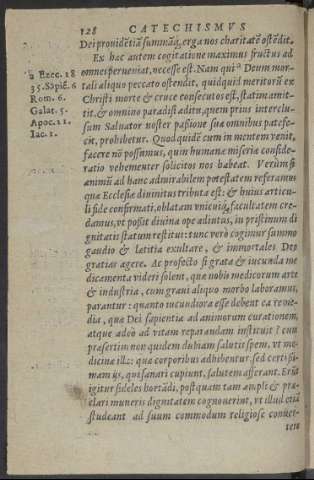 128 CATECHISMVS
Dei prouidẽtiã summãq́; erga nos charitatẽ ostẽdit.
Ex hac autem cogitatione maximus fructus ad
a Ezec. 18 omnes perueniat, necesse est. Nam qui ᵃ Deum mor-
35. Sapiẽ. 6 tali aliquo peccato ostendit, quidquid meritorũ ex
Rom. 6. Christi morte & cruce consecutus est, statim amit-
Galat. 5. tit, & omnino paradisi aditu, quem prius interclu-
Apoc. 21. sum Saluator noster passione sua omnibus patefe-
Iac. 1. cit, prohibetur. Quod quidẽ cum in mentem venit,
facere nõ possumus, quin humanæ miseriæ conside-
ratio vehementer solicitos nos habeat. Verùm si
animũ ad hanc admirabilem potestatem referamus
quæ Ecclesiæ diuinitus tributa est: & huius articu-
li fide confirmati, oblatam vnicuiq; facultatem cre-
damus, vt possit diuina ope adiutus, in pristinum di
gnitatis statum restitui: tunc verò cogimur summo
gaudio & lætitia exultare, & immortales Deo
gratias agere. Ac profectò si grata & iucunda me
dicamenta videri solent, quæ nobis medicorum arte
& industria, cum graui aliquo morbo laboramus,
parantur: quanto iucundiora esse debent ea reme-
dia, quæ Dei sapientia ad animorum curationem,
atque adeò ad vitam reparandam instituit? cùm
præsertim non quidem dubiam salutis spem, vt me-
dicinæ illæ: quæ corporibus adhibentur sed certissi-
mam ijs, qui sanari cupiunt, salutem afferant. Erũt
igitur fideles hortãdi, postquam tam ampli & præ-
clari muneris dignitatem cognouerint, vt illud etiã
studeant ad suum commodum religiosè conuer-
tere